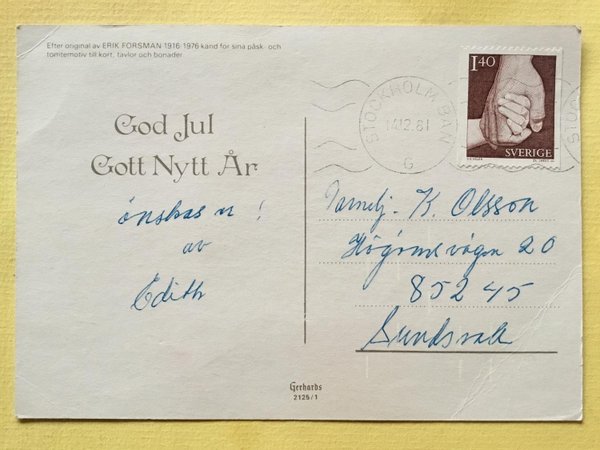 Efter original av ERIK FORSMAN 1916-1976 känd för sina påsk- och
tomtemotiv till kort, tavlor och bonader
God Jul
Gott Nytt År
önskas u!
av
Edith
STOCKHOLM BAN
14.12.81
G
STOC
1.40
SVERIGE
Familj. K. Olsson
Högomsvägen 20
852 45
Sundsvall
Gerhards
2125/1